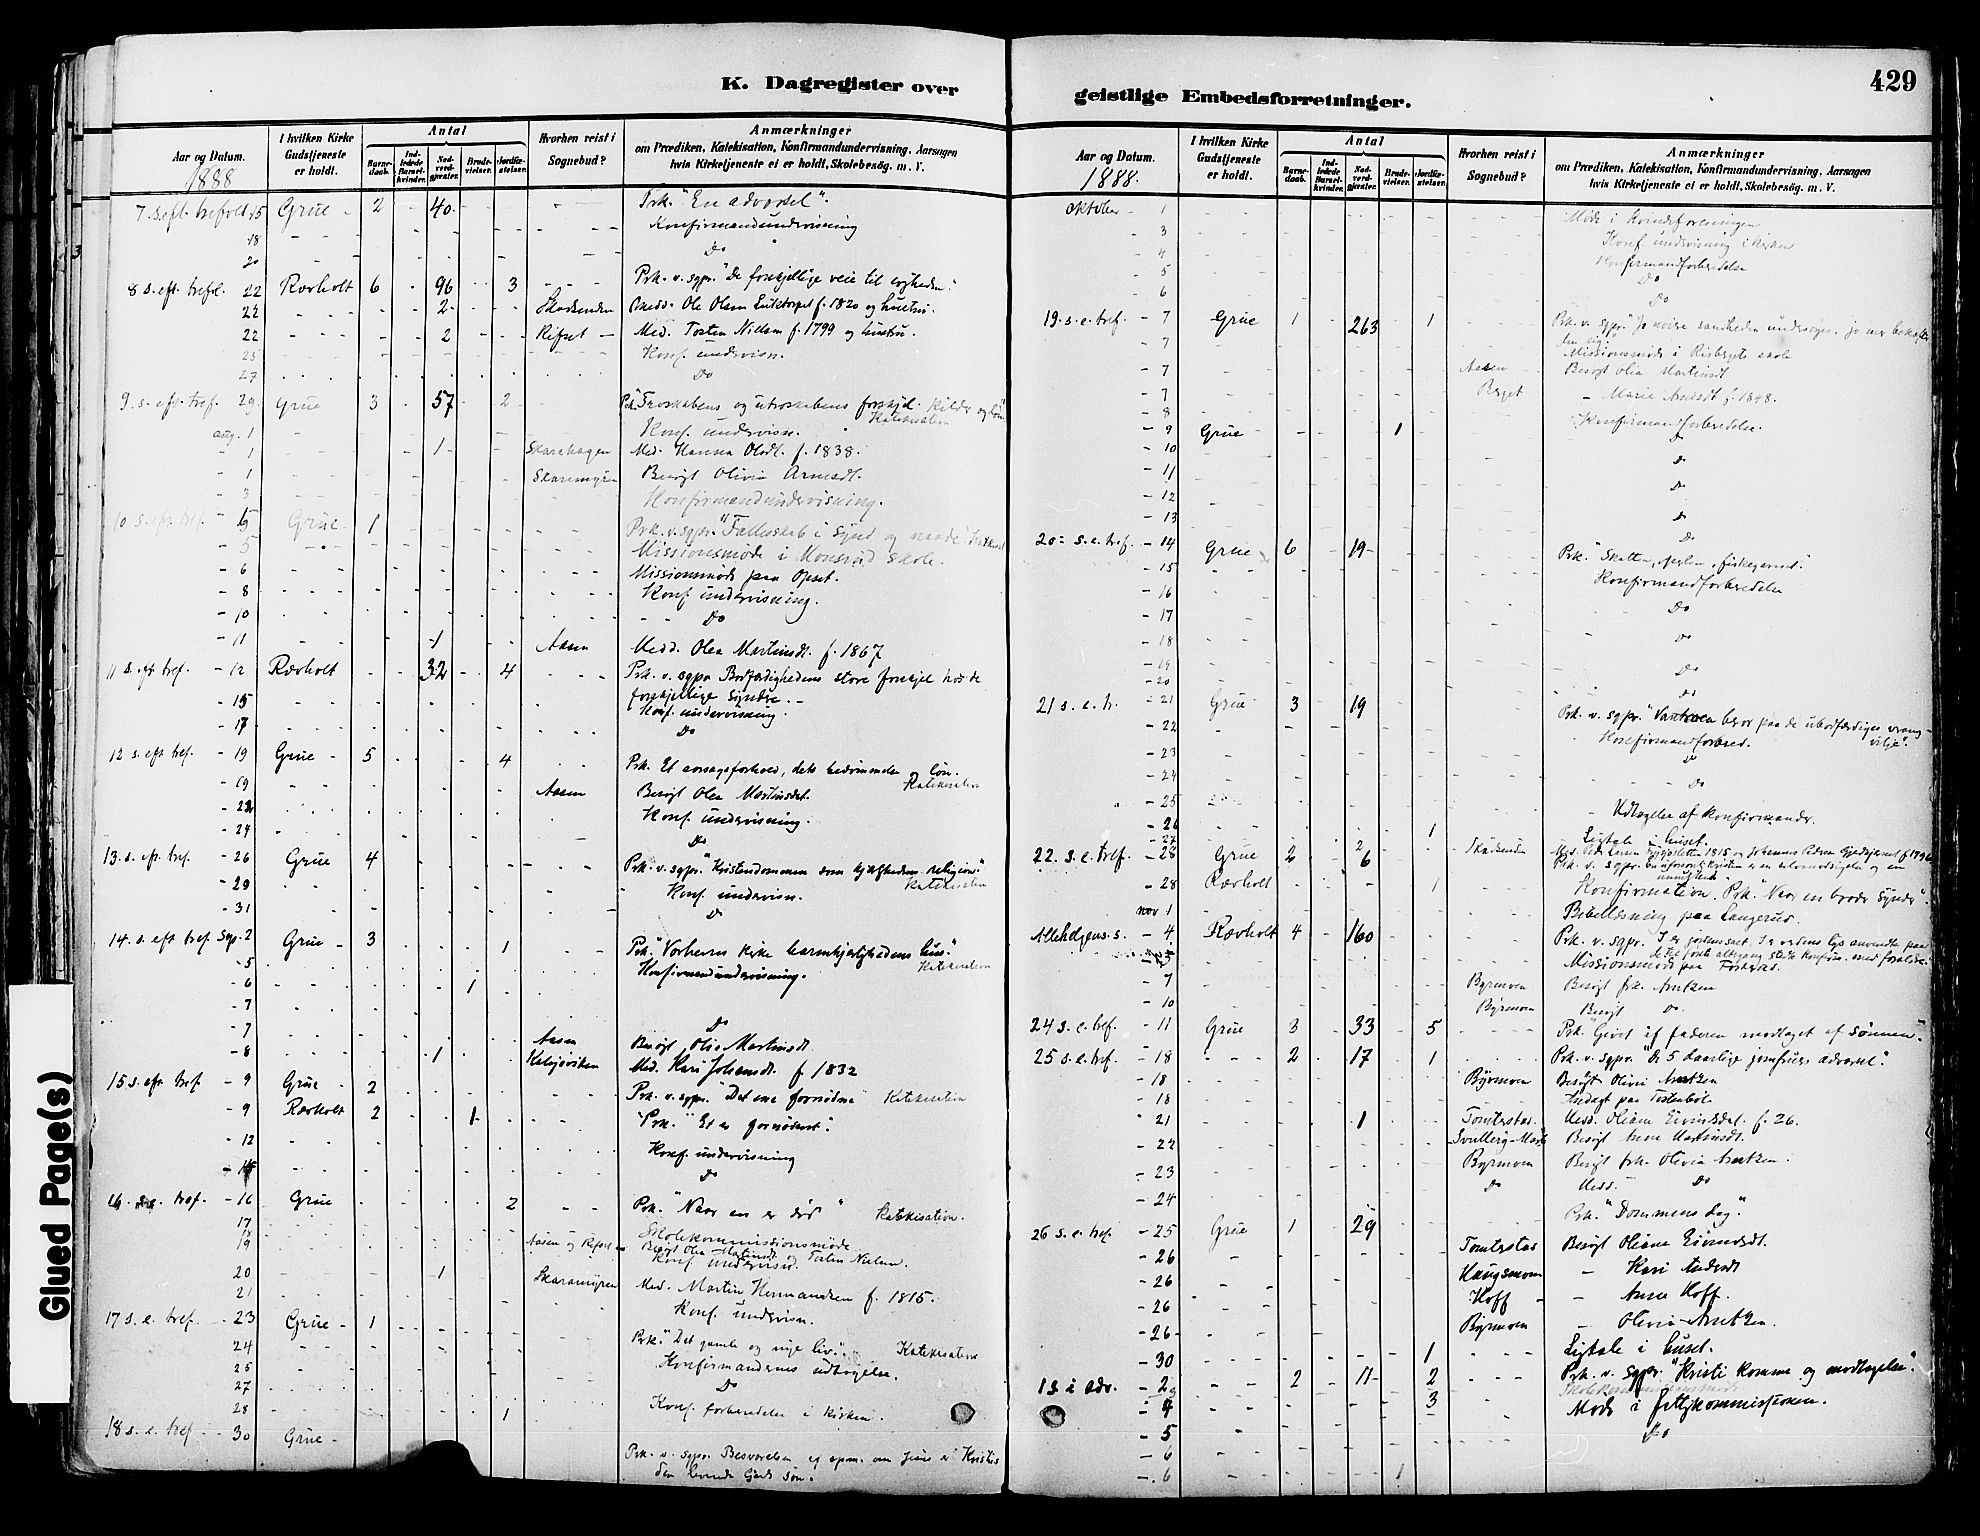 K. Dagregister over
Aar og Datum.
1888
I hvilken Kirke Gudstjeneste er holdt.
Antal
Barnedaab.
Indledede Barselkvinder.
Nadverdgjæster.
Brudevielser.
Jordfæstelser.
Hvorhen reist i Sognebud?
Anmærkninger
om Prædiken, Katekisation, Konfirmandundervisning, Aarsagen
hvis Kirketjeneste ei er holdt, Skolebesög. m. V.
7. s. eft. trefold. 15 Grue 2 40 Prk. "En advarsel".
18 Konfirmandundervisning
20 Do
8 s. eft. trefol. 22 Rævholt 6 96 3 Prk. v. sgpr. "De forskjellige veie til
22 2 Skadsenden Ole Olsen f. 1820 og hustru.
22 2 Rifset Med. Tosten Nielsen f. 1799 og hustru.
25 Konf. undervisn.
27 Do
9. s. eft. tref. 29 Grue 3 57 2 Troskabens og utroskabens forskjel. kilde og løn
Katekisation
aug. 1 Konf. undervisn.
1 1 Skarahagen Med. Hanna Olsdt. f. 1838.
1 Skaramyren Besögt Olivia Arnesdt.
3 Konfirmandundervisning.
10 s. eft. tref. 5 Grue 1 Prk. v. sgpr. "Fællesskab i synd og naade"
5 Missionsmøde i Monsrud skole.
6 Missionsmøde paa Opset.
8 Konf. undervisning.
10 Do
11 1 Aasen Medd. Olea Martinsdt. f. 1867
11 s. eft tref. 12 Rævholt 32 4 Prk. v. sgpr. Bodfærdighedens store forskjel hos de
forskjellige syndere.
15 Konf. undervisning.
17 Do
12 s. eft tref. 19 Grue 5 4 Prk. Et løn.
Katekisation
19 Aasen Besögt Olea Martinsdt.
22 Konf. undervisning.
24 Do
13. s. eft. tref. 26 Grue 4 Prk. v. sgpr. "Kristendommen som kjærlighedens religion"
Katekisation
29 Konf. undervisn.
31 Do
14. s. eft tref. Sep. 2 Grue 3 1 Prk. "Vorherres kirke barmhjertighedens hus".
Katekisation
5 Konfirmandundervisning.
6 1
7 Do
7 Aasen Besögt Olea Martinsdt.
8 1 Med. Kari Johansdt. f 1832
15 s. eft tref. 9 Grue 2 Prk. v. sgpr. "Det ene fornødne Katekisation
9 Rævholt 2 1 "Prk. "Et er fornødent".
12 Konf. undervisning
15 Do
16. s. e. tref. 16 Grue 2 Prk. "Naar en er død" Katekisation.
17 Skolekommissionsmøde
18
19 Aasen og Rifset Besögt Olea Martinsdt og Tosten Nielsen.
Konf. undervisn.
20 1 Skaramyren Med. Martin Hermandsen f. 1815.
21 Konf. undervisn.
17 s. e. tref. 23 Grue 1 Prk. "Det gamle og nye liv". Katekisation
24 Konfirmandernes udtagelse.
25 Do
27
28 1 Konf. forberedelse i kirken.
18 s. e. tref. 30 Grue Prk. v. sgpr. Besvarelsen af spm. om Jesus er Kristus
den levende Guds søn.
Glued Page(s)
geistlige Embedsforretninger.
429
Aar og Datum.
1888.
I hvilken Kirke Gudstjeneste er holdt.
Antal
Barnedaab.
Indledede Barselkvinder.
Nadverdgjæster.
Brudevielser.
Jordfæstelser.
Hvorhen reist i Sognebud?
Anmærkninger
om Prædiken, Katekisation, Konfirmandundervisning, Aarsagen
hvis Kirketjeneste ei er holdt, Skolebesög. m. V.
Oktober 1 Møde i kvindeforeningen
3 Konf. undervisning i kirken
4 Konfirmandforberedelse
5 Do
6 Do
19. s. e. tref. 7 Grue 1 263 1 Prk. v. sgpr. "Jo nøiere sandheden undersøges, jo mer bekræfter
den sig".
7 Missionsmøde i Risberget skole
7 Aasen Besögt Olea Martinsdt
7 Berget Marie Arnesdt f. 1848.
8 Konfirmandforberedelse.
9 Grue 1 Do
10 Do
11 Do
12
13 Do
20 s. e. tref. 14 Grue 6 19 Prk. "Skatten, perlen, fiskegarnet."
15 Konfirmandforberedelse
16 Do
17
18 Do
19 Do
20 Do
21 s. e. tr. 21 Grue 3 19 Prk. v. sgpr. "Vantroen beror paa de ubodfærdiges vrangvilje".
22 Konfirmandforbered.
23 Do
24 Do
25
26 Udtagelse af konfirmander.
27 1 Ligtale i huset.
22. s. e. tref. 28 Grue 2 2 6 Skadsenden
28 Rævholt 1 Konfirmation. Prk. "Naar en broder synder".
nov 1 Bibellæsning paa Langerud.
Allehelgens s. 4 Rævholt 4 160 Prk. v. sgpr. I er jordens salt, I er verdens lys anvendt paa
Missionsmøde paa
7 Byrmoen Besögt frk. Arntzen
10 Byrmoen Besögt Do.
24 s. e. tref. 11 Grue 3 33 5 Prk. "Givet af faderen modtaget af sønnen".
25 s. e. tref. 18 2 17 1 Prk. v. sgpr. "De 5 daarlige jomfruers advarsel".
18 Byrmoen Besögt Olivia Arntzen
18 Andagt paa Tostenböl
21 1 Tomterstad. Medd. Oliane Eivindsdt. f. 26.
22 Besögt Anne Martinsdt.
23 Byrmoen Besögt frk. Olivia Arntzen.
24 Do Medd. Do
26 s. e. tref. 25 Grue 1 29 Prk. "Dommens dag".
26 Tomterstad Besögt Oliane Eivindsdt.
26 Haugsmoen Kari Andersdt
26 Hoff Anne Hoff.
26 Byrmoen Olivia Arntzen.
30 1 Ligtale i huset.
1 s i adv. 2 2 11 2 Prk. v. sgpr. "Kristi komme og modtagelse".
4 3 Møde i fattigkommissionen.
5 Do
6
6 1